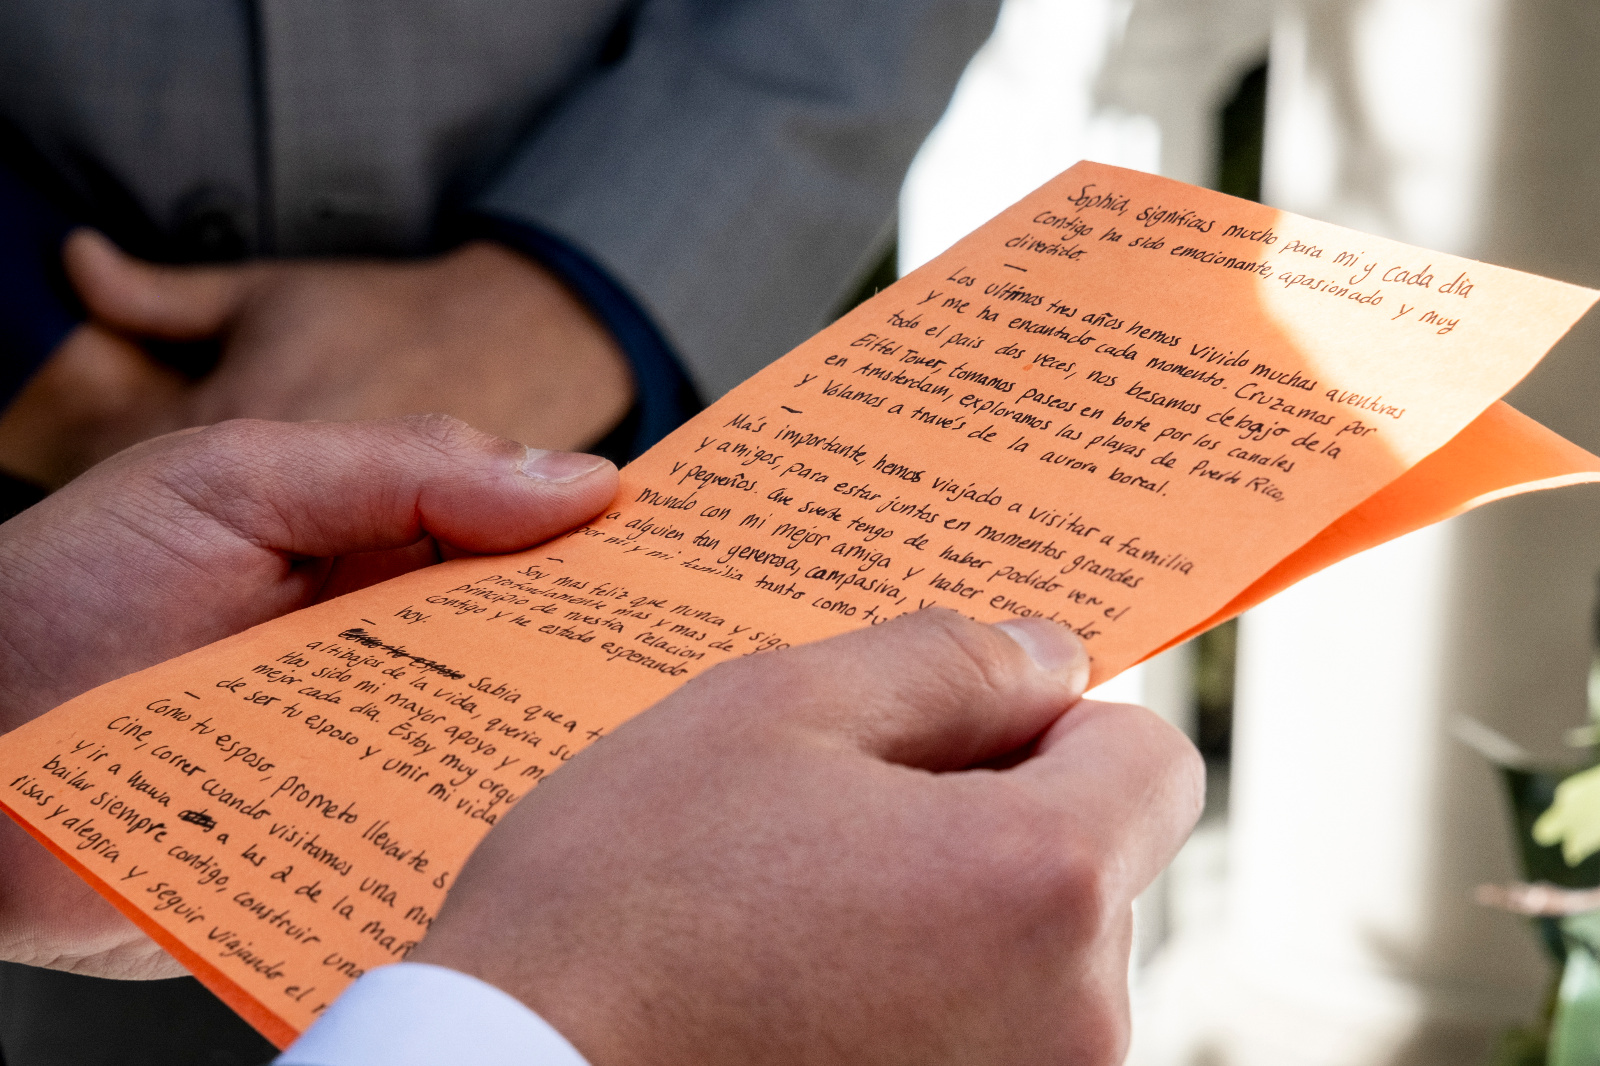 Sophia, significas mucho para mi y cada día
contigo ha sido emocionante, apasionado y muy
divertido.
Los ultimos tres años hemos vivido muchas aventuras
y me ha encantado cada momento. Cruzamos por
todo el pais dos veces, nos besamos debajo de la
Eiffel Tower, tomamos paseos en bote por los canales
en Amsterdam, exploramos las playas de Puerto Rico,
y Volamos a través de la aurora boreal.
Más importante, hemos viajado a visitar a familia
y amigos, para estar juntos en momentos grandes
y pequeños. Que suerte tengo de haber podido ver el
mundo con mi mejor amiga y haber encontrado
a alguien tan generosa, compasiva, y
por mi y mi familia tanto como tu
Soy mas feliz que nunca y sigo
profundamente mas y mas de
principio de nuestra relacion
contigo y he estado esperando
hoy.
Sabia que a
altibajos de la vida, queria su
Has sido mi mayor apoyo y m
mejor cada día. Estoy muy orgu
de ser tu esposo y unir mi vida
Como tu esposo, prometo llevarte
cine, correr cuando visitamos una nu
y ir a wawa a las 2 de la mañ
bailar siempre contigo, construir una
risas y alegría y seguir viajando el m